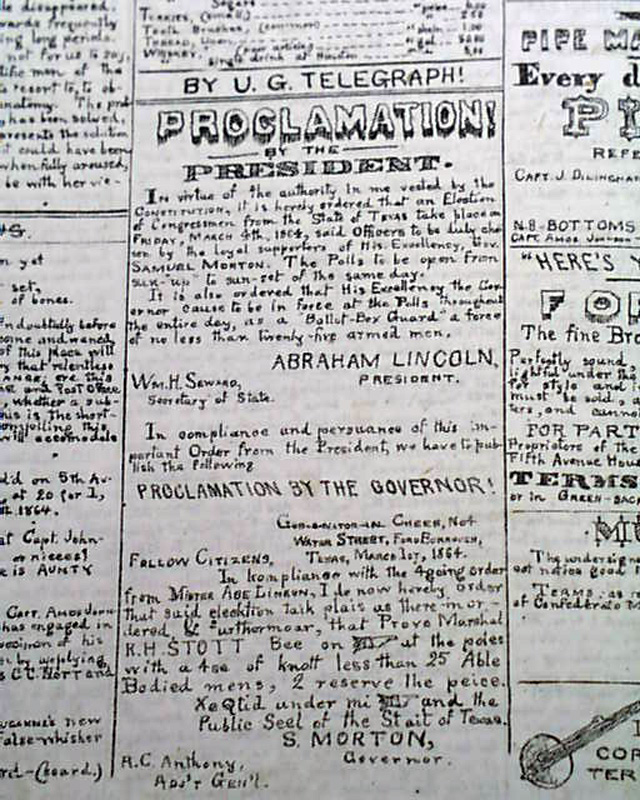 disappeared.
wards frequently
ing long periods.
not for us to say,
life men of the
resort to, to ob-
anatomy. The prob
has been solved,
presents the solution
it could have been
when fully aroused,
be with her vic-
yet
set,
of bones.
ndoubtedly before
of this place will
that relentless
and Post Office
whether a sub-
his is the short-
will accomodate
d on 5th Av-
at 20 for 1,
1864.
at Capt. John-
or nieces!
is AUNTY
Capt. Amos John-
has engaged in
specimen of his
by applying
C.C. Nott and
new
False-whisker
rd-(board.)
Segars
Turkies, (small)
Tooth Brushes, (common)
single drink at Houston
BY U. G. TELEGRAPH!
PROCLAMATION!
BY THE
PRESIDENT.
In virtue of the authority in me vested by the
Constitution, it is hereby ordered that an Election
of Congressmen from the State of Texas take place on
Friday, March 4th, 1864, said Officers to be duly cho
sen by the loyal supporters of His Excellency, Gov.
Samuel Morton. The Polls to be open from
sun-up to sun-set of the same day.
It is also ordered that His Excellency the Gov-
ernor cause to be in force at the Polls throughout
the entire day, as a "Ballot-Box Guard" a force
of no less than twenty-five armed men.
ABRAHAM LINCOLN,
President.
Wm. H. Seward,
Secretary of State.
In compliance and persuance of this im-
portant Order from the President, we have to pub-
lish the following
PROCLAMATION BY THE GOVERNOR!
Gubernatorial Cheer, No1
Water Street, Ford Borough,
Texas, March 1st, 1864.
Fellow Citizens,
In kompliance with the 4going order
from Mister Abe Linkun, I do now hereby order
that said elecktion taik plais as there in or-
dered, & furthermoar, that Provo Marshal
R.H. STOTT Bee on at the poles
with a 4se of knott less than 25 Able
Bodied mens, 2 reserve the peice.
XeQtid under mi and the
Public Seel of the Stait of Texas.
S. MORTON,
Governor.
A.C. Anthony,
Adj't Gen'l.
PIPE MA
Every d
PI
REFE
Capt. J. Dillingham
N.B-BOTTOMS
Capt. Amos Johnson
"HERE'S Y
FOR
The fine Bro
Perfectly sound,
lightful under the
for style and
must be sold,
ters, and canno
FOR PART
Proprietors of the
Fifth Avenue Hou
TERMS
or in Green-bac
MU
The undersign
not notice good
Terms. as
of Confederate
COR
TER